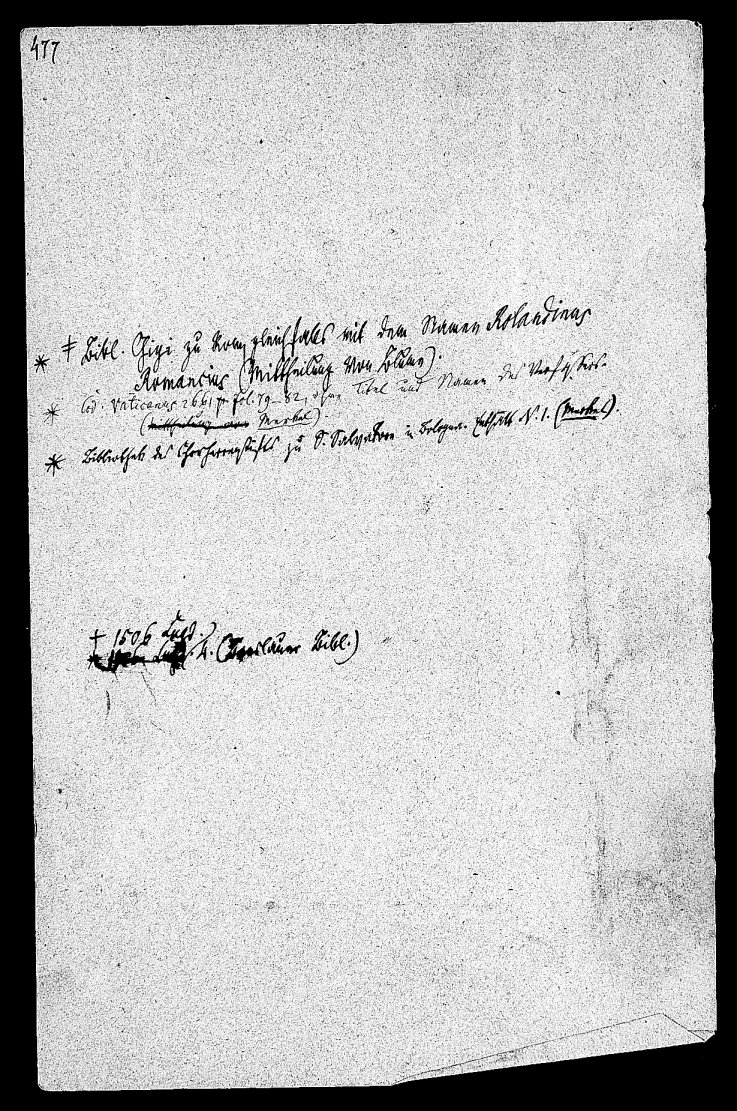 477
* ‡ Bibl. Gigi zu Rom gleichfalls mit dem Namen Rolandinus
Romancius (Mittheilung von Blume).
* Cod. Vaticanus 2661, fol. 79-82, ohne Titel und Namen des Verfassers.
(Mittheilung von Merkel).
* Bibliothek des Chorherrenstifts zu S. Salvatore in Bologna. Enthält N. 1. (Merkel).
† 1506 Lugd.
4. (Breslauer Bibl.)